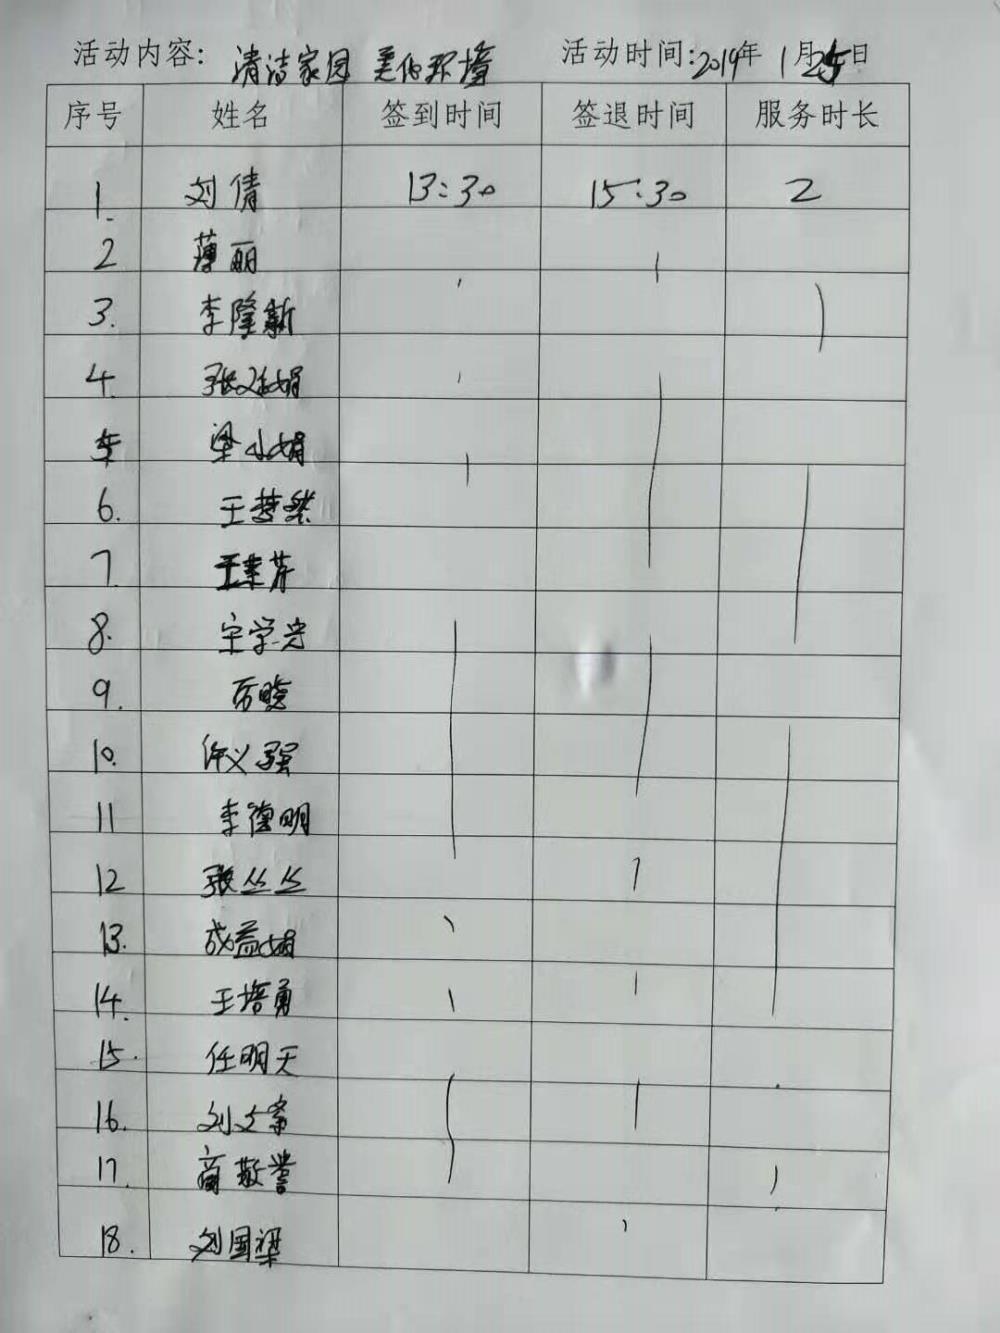 活动内容: 清洁家园 美化环境 活动时间:2019年 1月25日
序号 姓名 签到时间 签退时间 服务时长
1. 刘倩 13:30 15:30 2
2 薄丽
3. 李隆新
4.
5 梁小娟
6. 王梦桀
7.
8.
9. 厉晓
10. 许义强
11 李德明
12 张丛丛
13. 成益娟
14. 王培勇
15. 任明天
16. 刘文
17. 商敬誉
18. 刘国梁